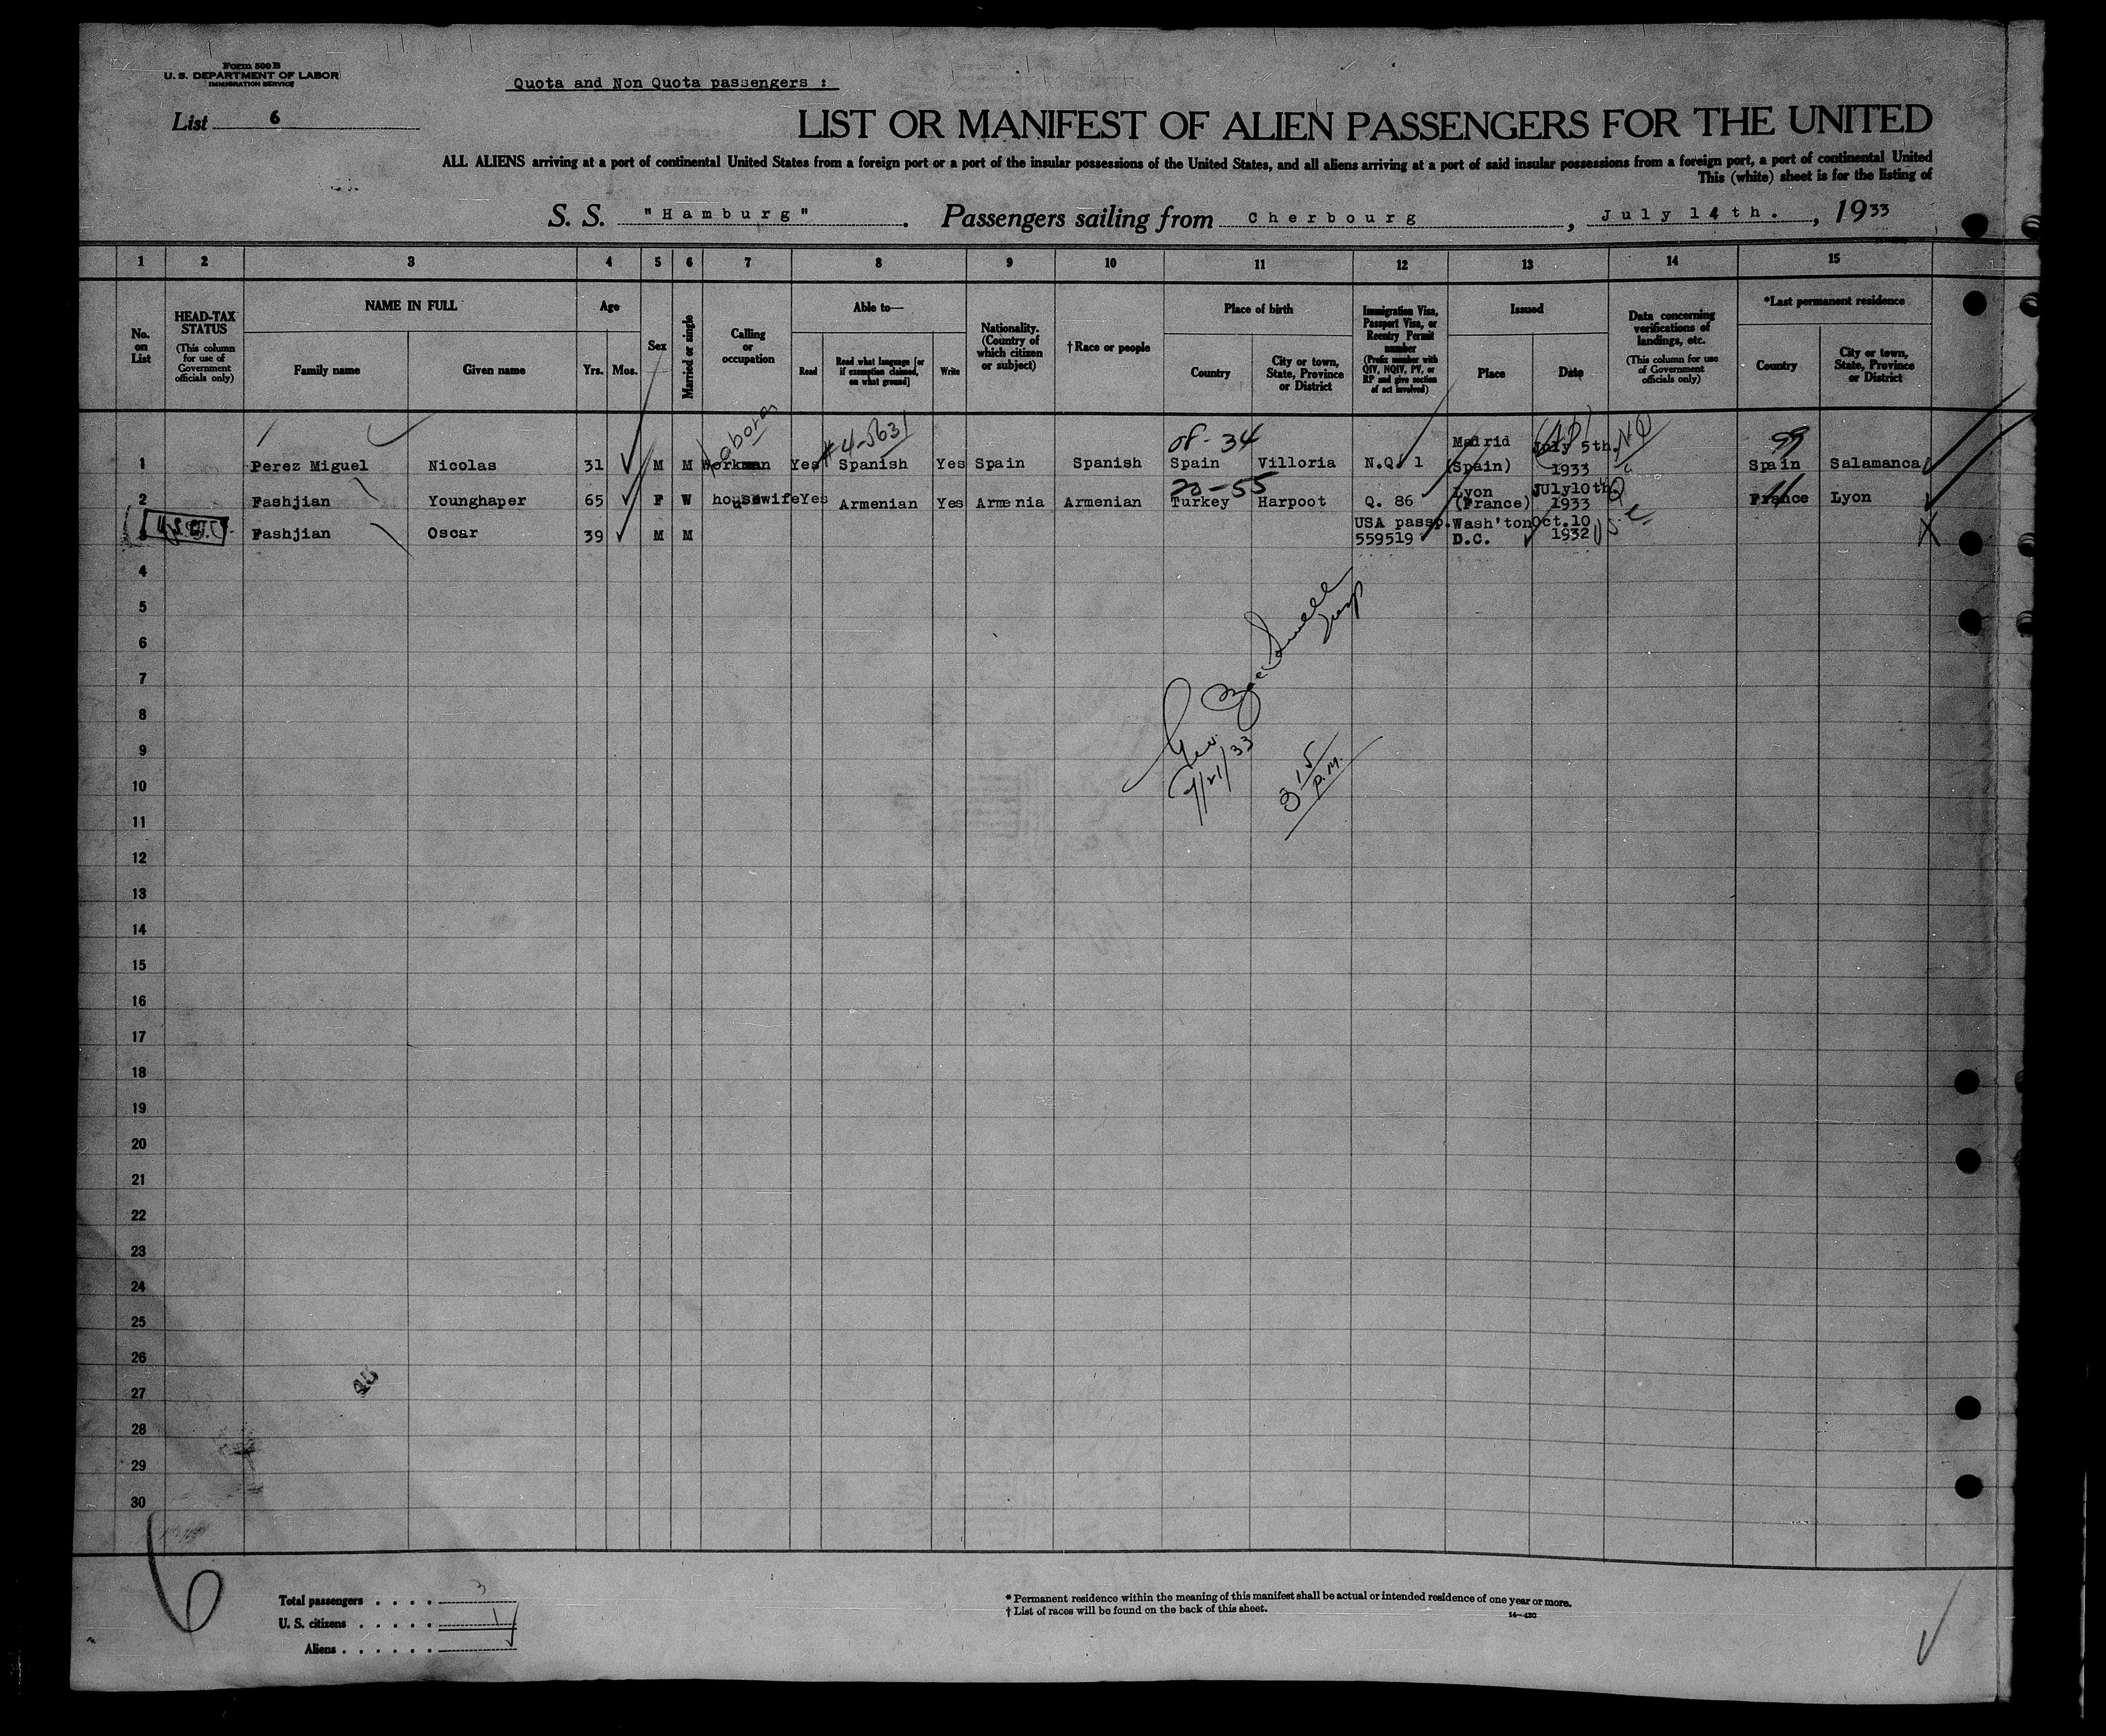 Form 500 B
U. S. DEPARTMENT OF LABOR
IMMIGRATION SERVICE
Quota and Non Quota passengers :
List 6
LIST OR MANIFEST OF ALIEN PASSENGERS FOR THE UNITED
ALL ALIENS arriving at a port of continental United States from a foreign port or a port of the insular possessions of the United States, and all aliens arriving at a port of said insular possessions from a foreign port, a port of continental United
This (white) sheet is for the listing of
S. S. "Hamburg" . Passengers sailing from Cherbourg , July 14th. , 1933
1 2 3 4 5 6 7 8 9 10 11 12 13 14 15
No. on List
HEAD-TAX STATUS (This column for use of Government officials only)
NAME IN FULL
Family name
Given name
Age
Yrs. Mos.
Sex
Married or single
Calling or occupation
Able to—
Read
Read what language [or if exemption claimed, on what ground]
Write
Nationality. (Country of which citizen or subject)
†Race or people
Place of birth
Country
City or town, State, Province or District
Immigration Visa, Passport Visa, or Reentry Permit number (Prefix number with QIV, NQIV, PV, or RP and give section of act involved)
Issued
Place
Date
Data concerning verifications of landings, etc. (This column for use of Government officials only)
*Last permanent residence
Country
City or town, State, Province or District
Laborer #4-5631 of-34 99
1 Perez Miguel Nicolas 31 M M Workman Yes Spanish Yes Spain Spanish Spain Villoria N.Q. 1 Madrid (Spain) July 5th. 1933 Spain Salamanca
20-55
2 Fashjian Younghaper 65 F W housewife Yes Armenian Yes Armenia Armenian Turkey Harpoot Q. 86 Lyon (France) July10th. 1933 Q France Lyon
3 Fashjian Oscar 39 M M USA passp. 559519 Wash'ton D.C. Oct.10 1932
4
5
6
7
8
9
7/21/33
3 15 P.M.
10
11
12
13
14
15
16
17
18
19
20
21
22
23
24
25
26
27
28
29
30
45
6
Total passengers . . . . 3
U. S. citizens . . . . . 1
Aliens . . . . . .
* Permanent residence within the meaning of this manifest shall be actual or intended residence of one year or more.
† List of races will be found on the back of this sheet.
14—430